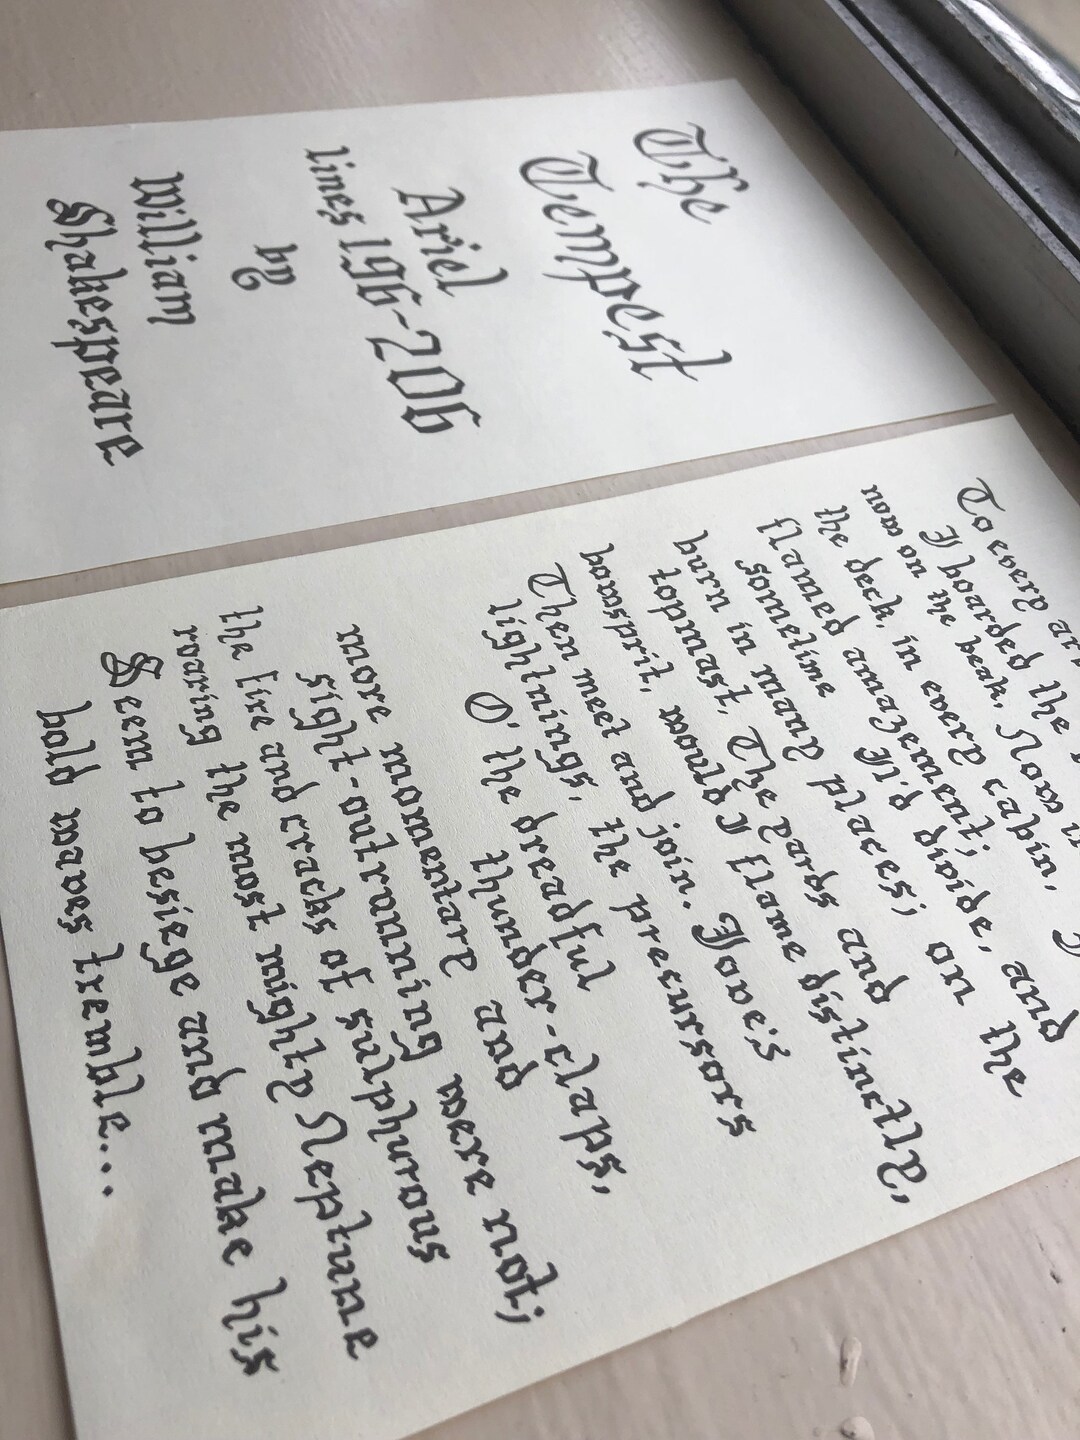 The
Tempest
Ariel
lines 196-206
by
William
Shakespeare
To every
I boarded the
now on the beak, Now in
the deck, in every cabin, I
flamed amazement;
sometimes I'd divide, and
burn in many places; on the
topmast, The yards and
bowsprit, would I flame distinctly,
Then meet and join. Jove's
lightnings, the precursors
O' the dreadful thunder-claps,
more momentary and
sight-outrunning were not;
the fire and cracks of sulphurous
roaring the most mighty Neptune
Seem to besiege and make his
bold waves tremble...